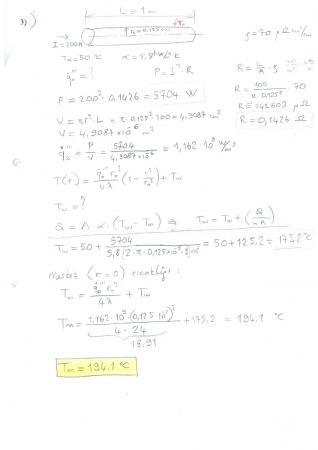 3)
L = 1m
r₀=0.125cm
I=200A
ρ=70 μΩcm²/m
T∞=50 °C α=5,8 kW/m²K
q̇₀''' = ? P=I².R R=L/A.ρ
P=200².0,1426=5704 W R=100/π.0,125².70
R=142603 μΩ
R=0,1426 Ω
V=πr².L=π.0,125².100=4,9087 cm³
V=4,9087×10⁻⁶ m³
q̇₀'''=P/V=5704/4,9087×10⁻⁶=1,162.10⁹ W/m³
T(r)=q̇₀'''r₀²/4λ(1-r²/r₀²)+Tw
Tw=?
Q=A.α.(Tw-T∞) ⇒ Tw=T∞+(Q/α.A)
Tw=50+5704/5,8(2.π.0,125×10⁻².1)×10³=50+125,2=175,2°C
Merkez (r=0) sıcaklığı:
Tm=q̇₀'''r₀²/4λ+Tw
Tm=1,162.10⁹(0,125.10⁻²)²/4.24+175,2=194,1 °C
18,91
Tm=194,1 °C